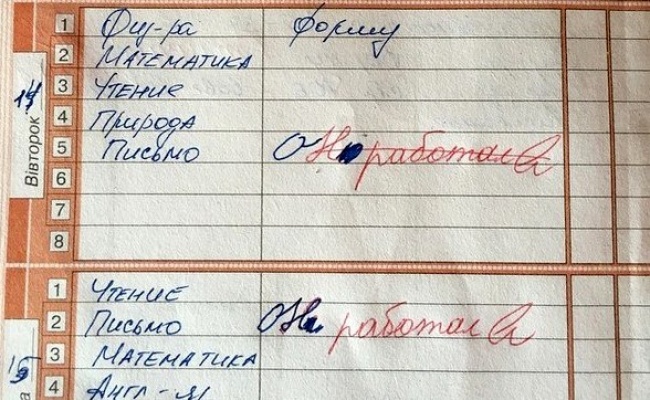 14
Вівторок
1 Физ-ра форму
2 Математика
3 Чтение
4 Природа
5 Письмо Он работала
6
7
8
15
1 Чтение
2 Письмо Он работала
3 Математика
4 Англ-яз